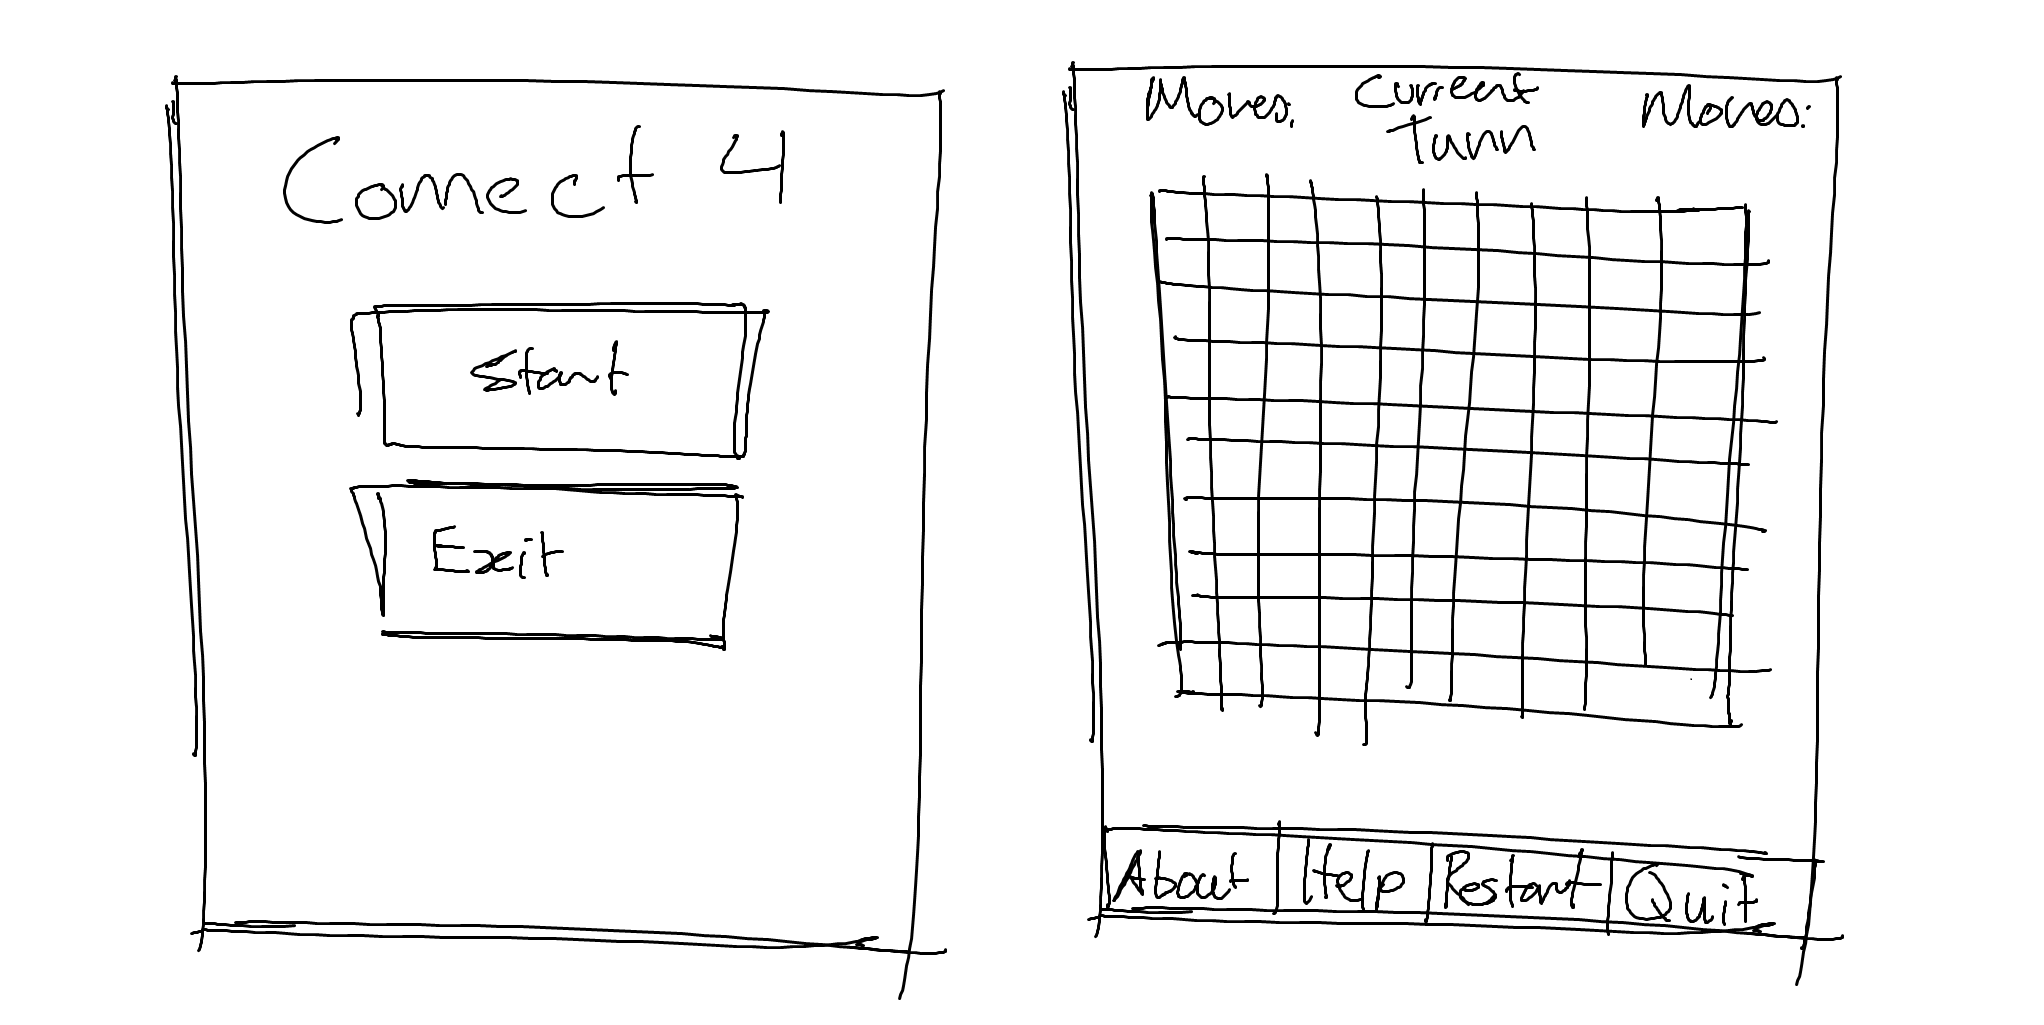 Connect 4
Start
Exit
Moves:
Current
Turn
Moves:
About
Help
Restart
Quit